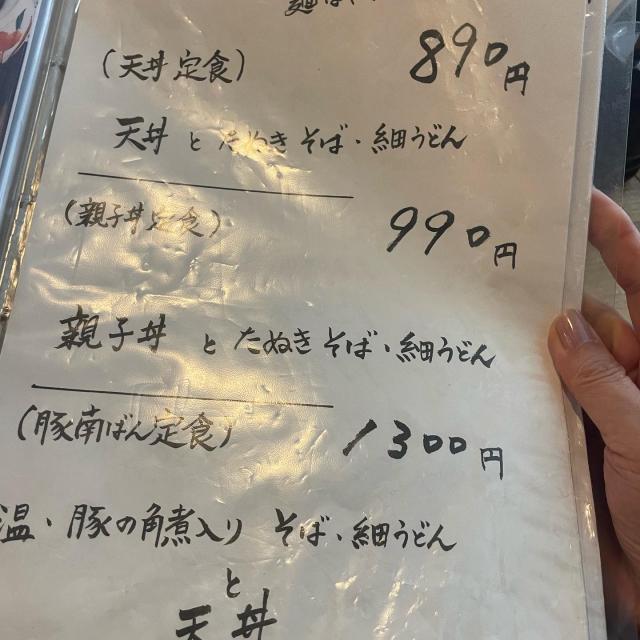 (天丼定食) 890円
天丼 と たぬき そば・細うどん
(親子丼定食) 990円
親子丼 と たぬき そば・細うどん
(豚南ばん定食) 1300円
温・豚の角煮入り そば・細うどん
と
天丼